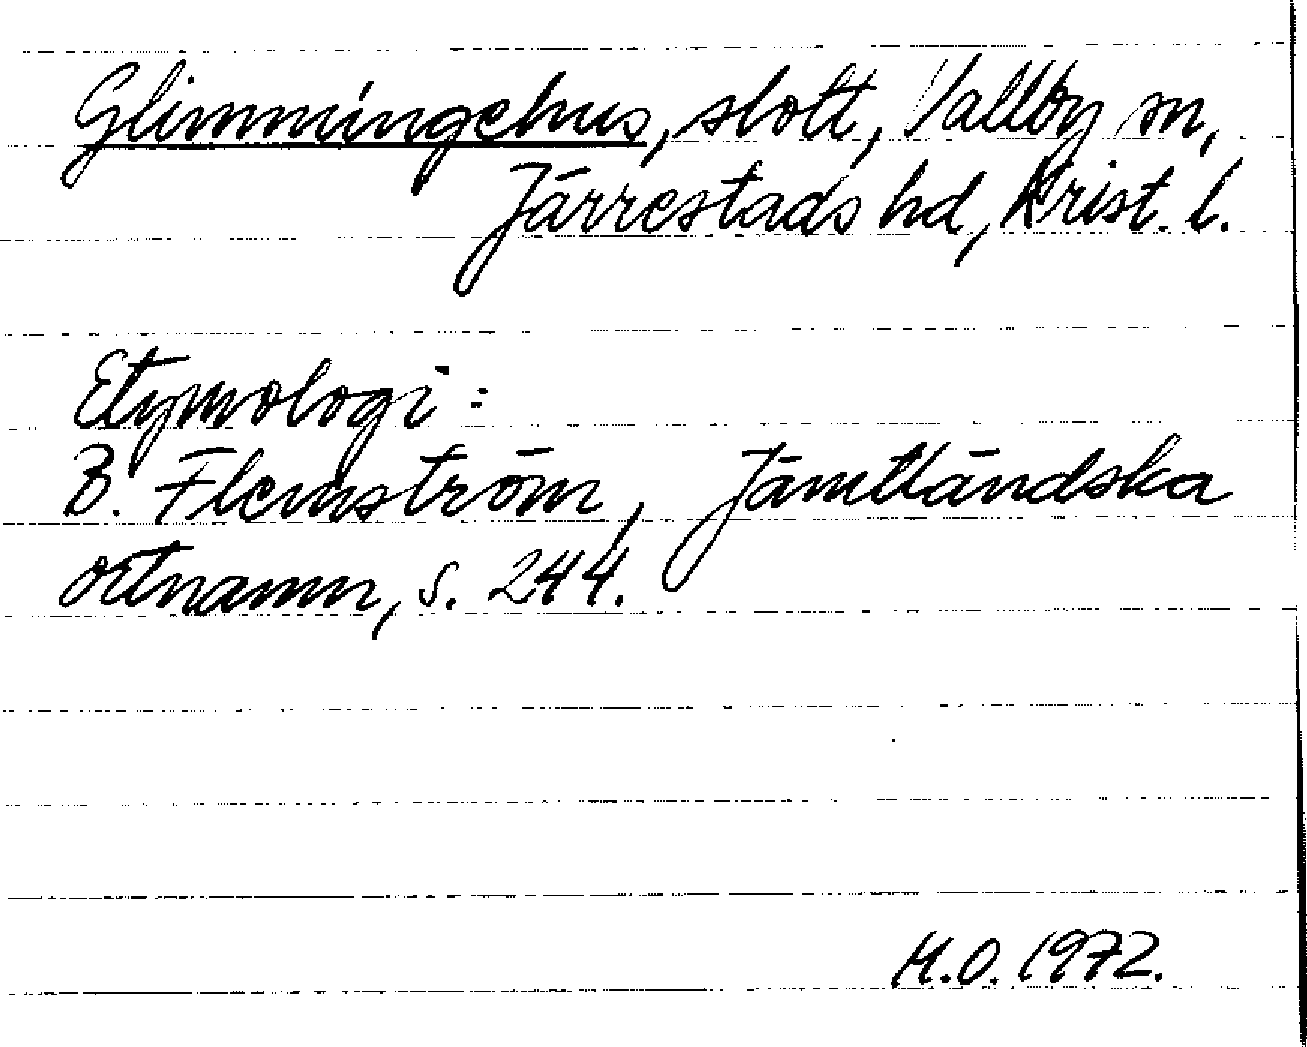 Glimmingehus, slott, Vallby sn,
Järrestads hd, Krist. l.
Etymologi:
B. Flemström, Jämtländska
ortnamn, s. 244.
M.O. 1972.